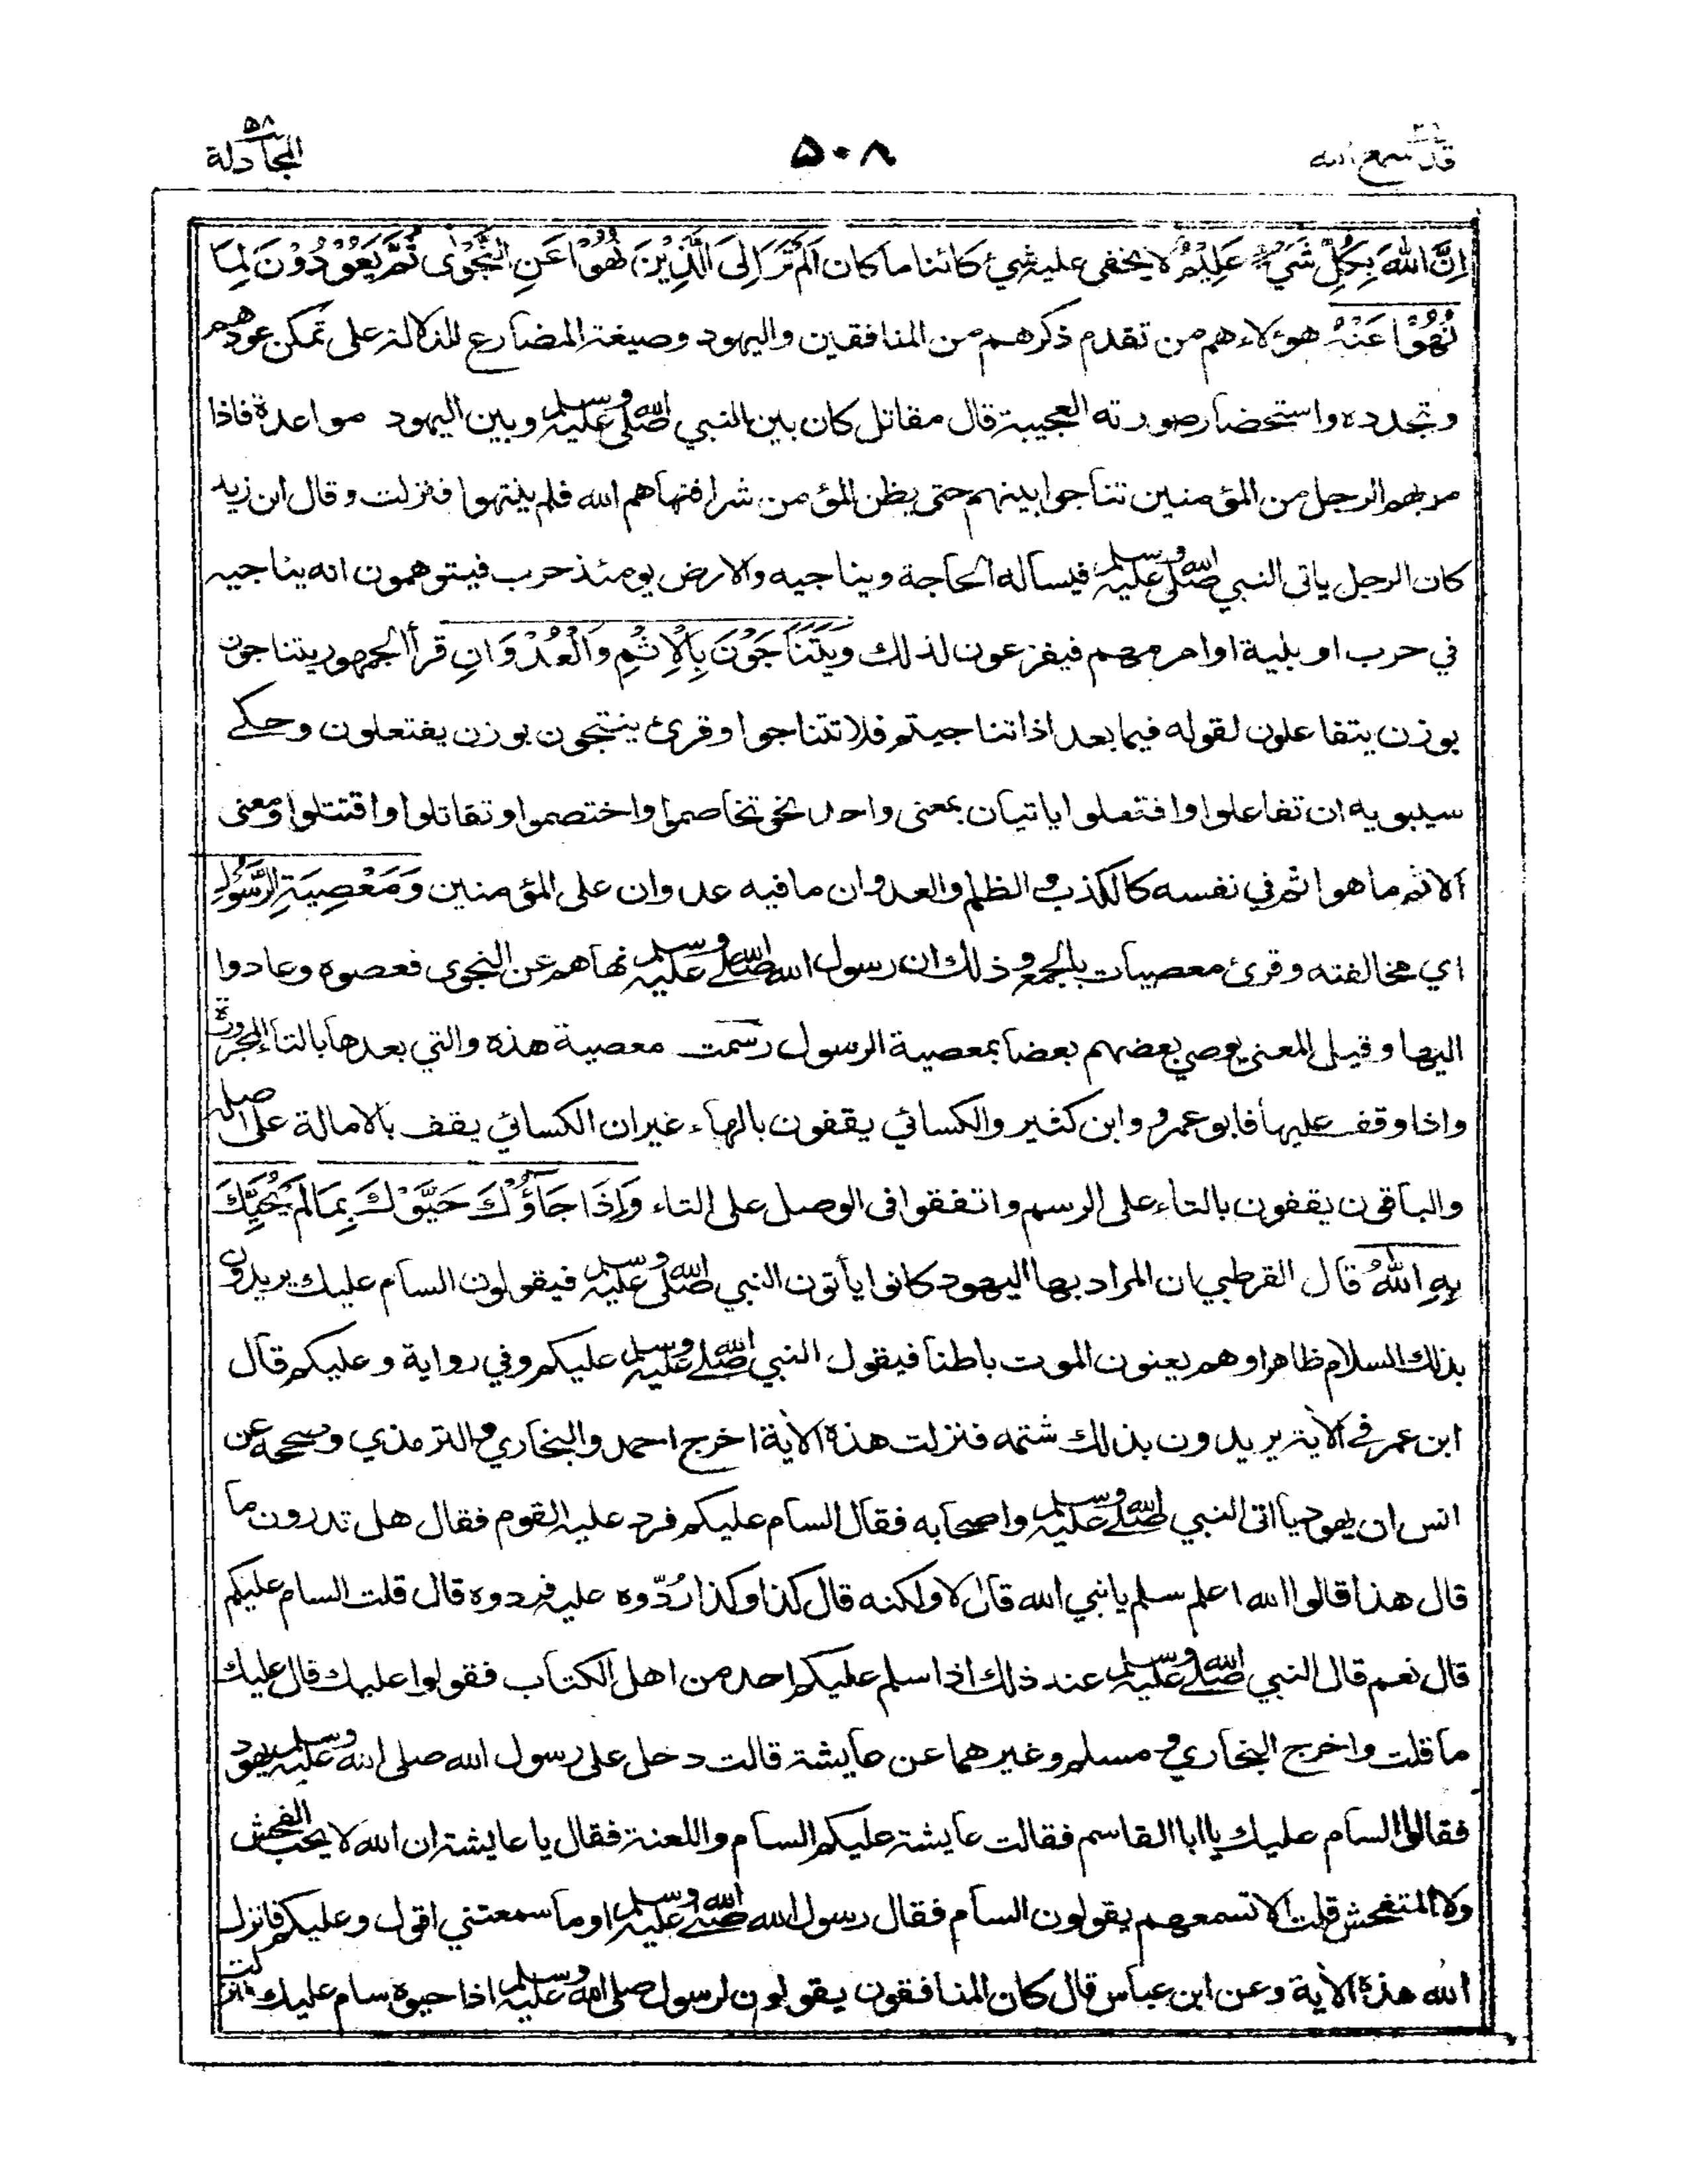 قد سمع الله ٢٨
٥٠٨
المجادلة ٥٨
اِنَّ اللهَ بِكُلِّ شَيْءٍ عَلِيْمٌ لا يخفى عليه شئ كائنا ما كان اَلَمْ تَرَ اِلَى الَّذِيْنَ نُهُوْا عَنِ النَّجْوٰى ثُمَّ يَعُوْدُوْنَ لِمَا
نُهُوْا عَنْهُ هؤلاء هم من تقدم ذكرهم من المنافقين واليهود وصيغة المضارع للدلالة على تمكن عودهم
وتجدده واستحضار صورته العجيبة قال مقاتل كان بين النبي صلى الله عليه وسلم وبين اليهود مواعدة فاذا
مر بهم الرجل من المؤمنين تناجوا بينهم حتى يظن المؤمن شرا فنهاهم الله فلم ينتهوا فنزلت وقال ابن زيد
كان الرجل ياتى النبي صلى الله عليه وسلم فيساله الحاجة ويناجيه والارض يومئذ حرب فيتوهمون انه يناجيه
في حرب او بلية او امر مهم فيفزعون لذلك وَيَتَنَاجَوْنَ بِالْاِثْمِ وَالْعُدْوَانِ قرأ الجمهور يتناجون
بوزن يتفاعلون لقوله فيما بعد اذا تناجيتم فلا تتناجوا وقرئ ينتجون بوزن يفتعلون وحكے
سيبويه ان تفاعلوا وافتعلوا ياتيان بمعنى واحد نحو تخاصموا واختصموا وتقاتلوا واقتتلوا ومعنى
الاثم ما هو اثم في نفسه كالكذب والظلم والعدوان ما فيه عدوان على المؤمنين وَمَعْصِيَةِ الرَّسُوْلِ
اي مخالفته وقرئ معصيات بالجمع وذلك ان رسول الله صلى الله عليه وسلم نهاهم عن النجوى فعصوه وعادوا
اليها وقيل المعنى يوصي بعضهم بعضا بمعصية الرسول رسمت معصية هذه والتي بعدها بالتاء المجرورة
واذا وقف عليها فابو عمرو وابن كثير والكسائي يقفون بالهاء غير ان الكسائي يقف بالامالة على اصله
والباقون يقفون بالتاء على الرسم واتفقوا فى الوصل على التاء وَاِذَا جَآؤُكَ حَيَّوْكَ بِمَا لَمْ يُحَيِّكَ
بِهِ اللهُ قال القرطبي ان المراد بها اليهود كانوا يأتون النبي صلى الله عليه وسلم فيقولون السام عليك يريدون
بذلك السلام ظاهرا وهم يعنون الموت باطنا فيقول النبي صلى الله عليه وسلم عليكم وفي رواية وعليكم قال
ابن عمر في الآية يريدون بذلك شتمه فنزلت هذه الآية اخرج احمد والبخاري والترمذي وصححه عن
انس ان يهوديا اتى النبي صلى الله عليه وسلم واصحابه فقال السام عليكم فرد عليه القوم فقال هل تدرون ما
قال هذا قالوا الله اعلم سلم يا نبي الله قال لا ولكنه قال كذا وكذا رُدّوه علي فردوه قال قلت السام عليكم
قال نعم قال النبي صلى الله عليه وسلم عند ذلك اذا سلم عليكم احد من اهل الكتاب فقولوا عليك قال عليك
ما قلت واخرج البخاري ومسلم وغيرهما عن عايشة قالت دخل على رسول الله صلى الله عليه وسلم يهود
فقالوا السام عليك يا ابا القاسم فقالت عايشة عليكم السام واللعنة فقال يا عايشة ان الله لا يحب الفحش
ولا المتفحش قلت الا تسمعهم يقولون السام فقال رسول الله صلى الله عليه وسلم او ما سمعتني اقول وعليكم فانزل
الله هذه الآية وعن ابن عباس قال كان المنافقون يقولون لرسول صلى الله عليه وسلم اذا حيوه سام عليك فنزلت